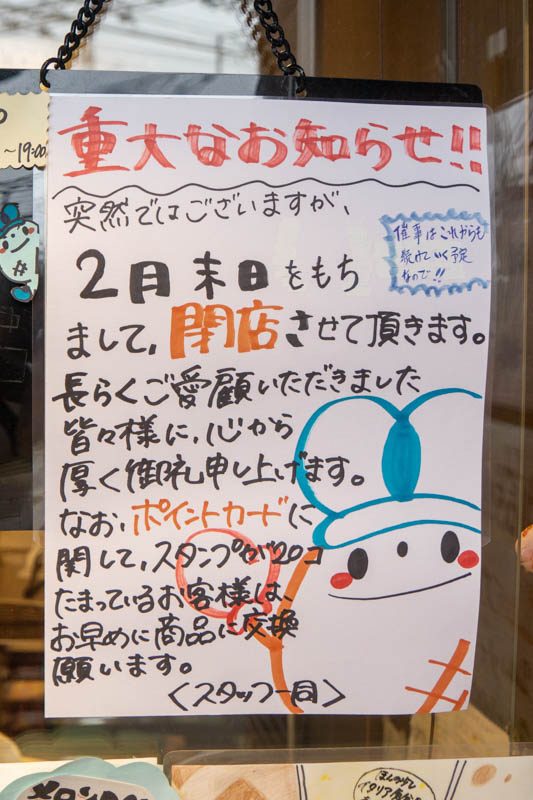 重大なお知らせ!!
突然ではございますが、
2月末日をもち
まして、閉店させて頂きます。
長らくご愛顧いただきました
皆々様に、心から
厚く御礼申し上げます。
なお、ポイントカードに
関して、スタンプが20コ
たまっているお客様は、
お早めに商品に交換
願います。
〈スタッフ一同〉
催事はこれからも
続けていく予定
なので!!
～19:00
メロン
ほんのり
イタリア